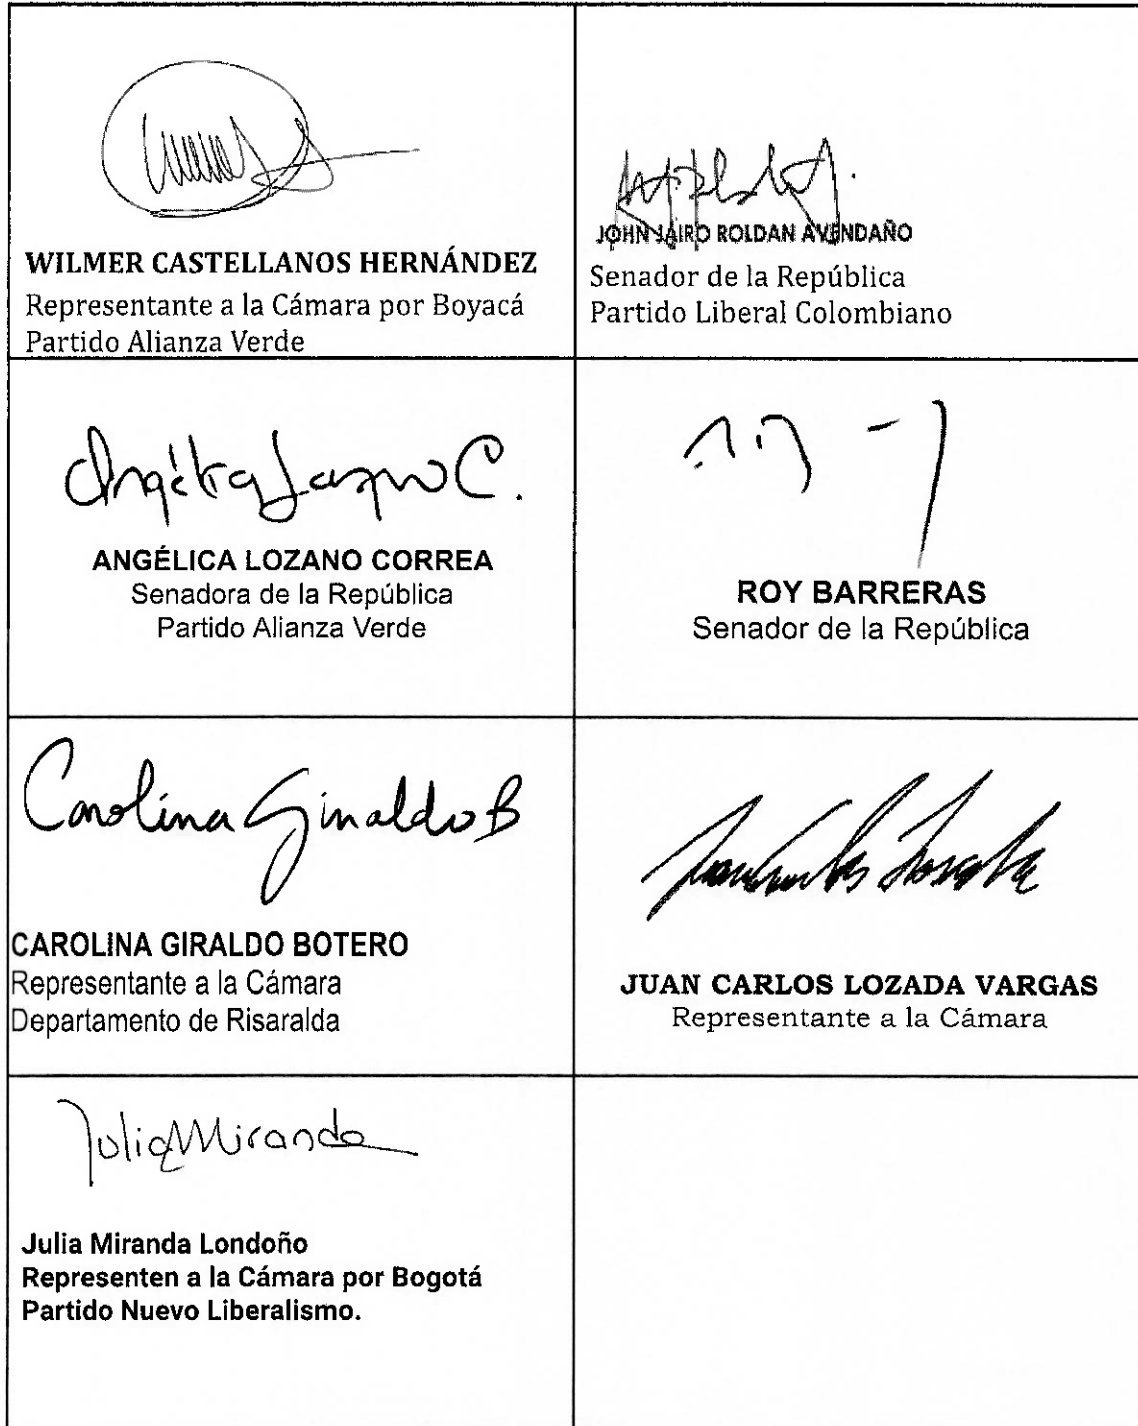 WILMER CASTELLANOS HERNÁNDEZ
Representante a la Cámara por Boyacá
Partido Alianza Verde
JOHN JAIRO ROLDAN AVENDAÑO
Senador de la República
Partido Liberal Colombiano
Angélica Lozano C.
ANGÉLICA LOZANO CORREA
Senadora de la República
Partido Alianza Verde
ROY BARRERAS
Senador de la República
Carolina Giraldo B
CAROLINA GIRALDO BOTERO
Representante a la Cámara
Departamento de Risaralda
Juan Carlos Losada
JUAN CARLOS LOZADA VARGAS
Representante a la Cámara
Julia Miranda
Julia Miranda Londoño
Representen a la Cámara por Bogotá
Partido Nuevo Liberalismo.